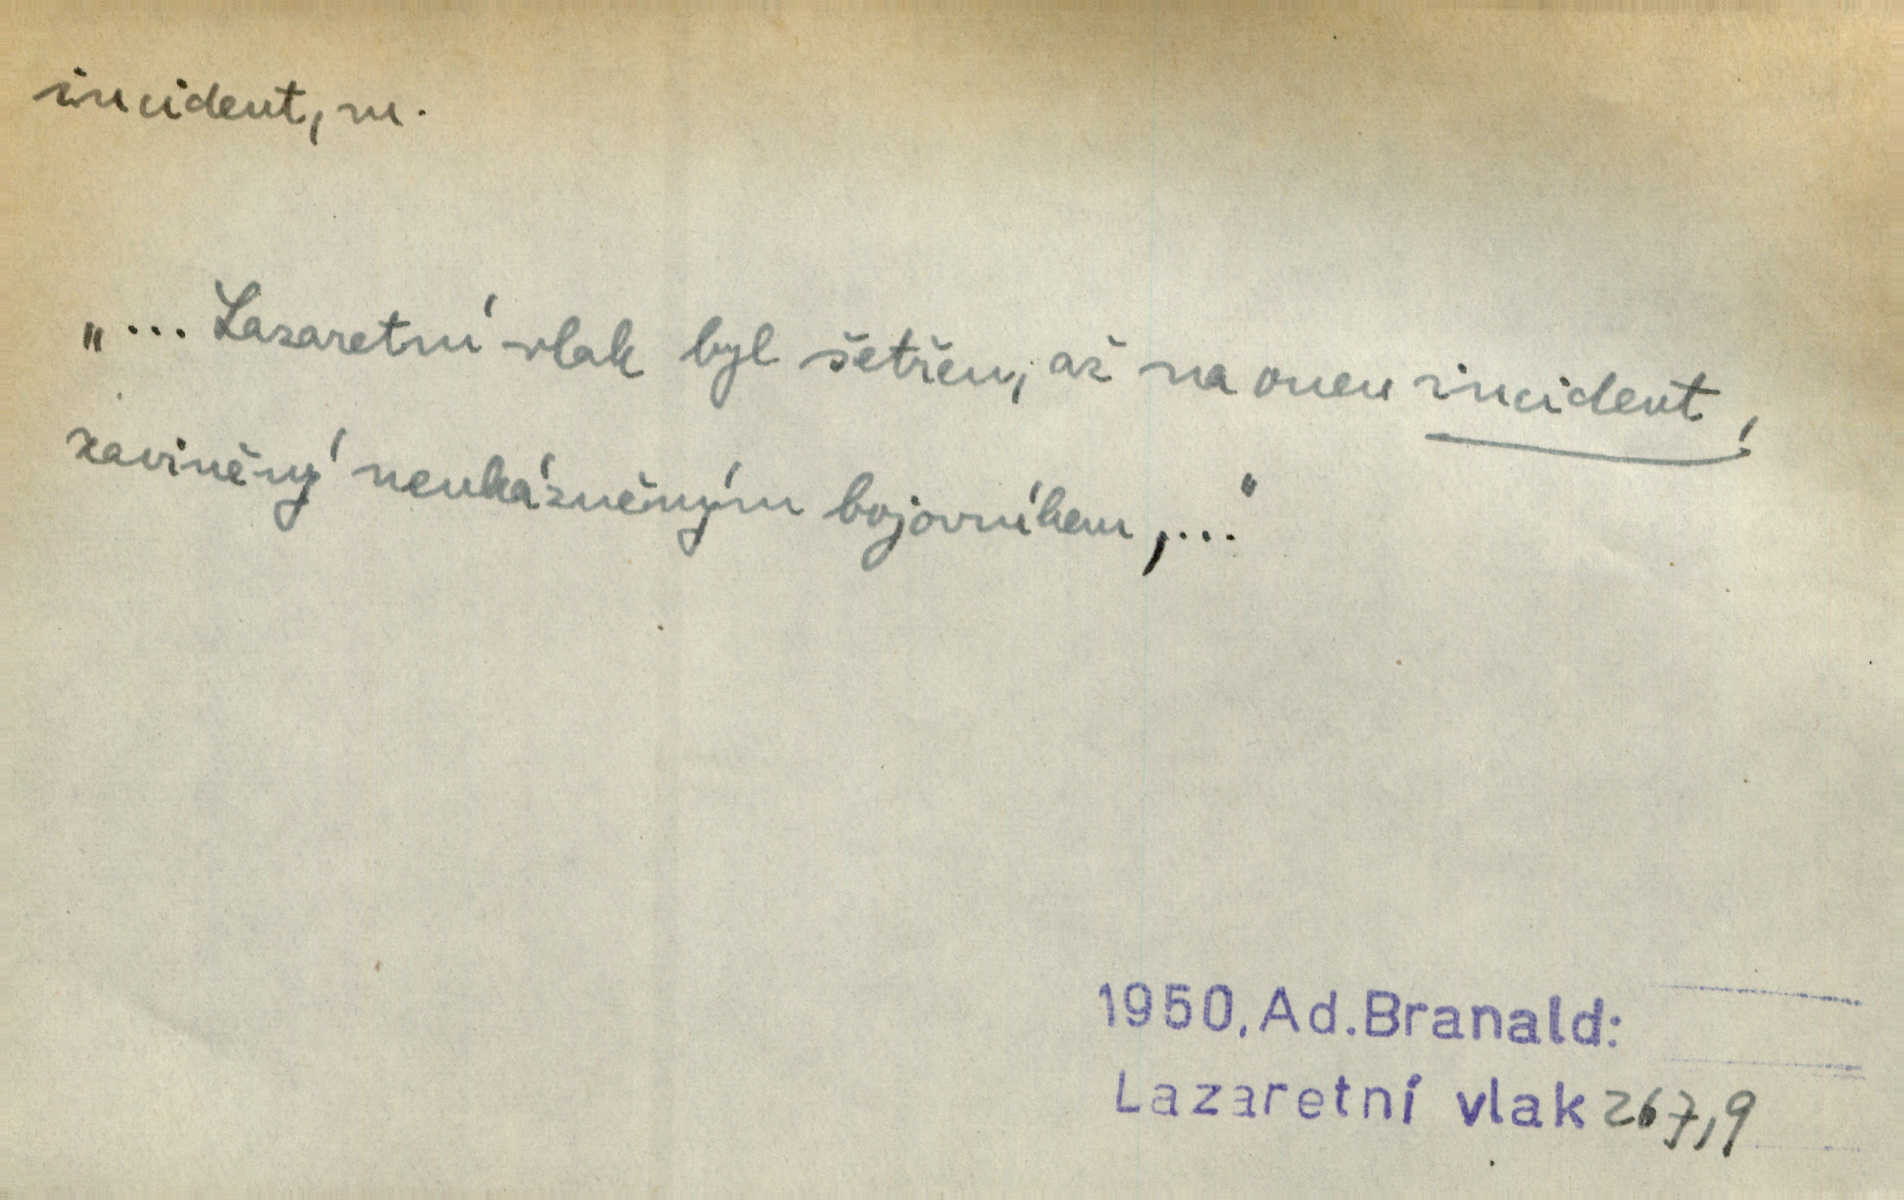 incident, m.
„... Lazaretní vlak byl šetřen, až na onen incident,
zaviněný neukázněným bojovníkem,..."
1950, Ad. Branald:
Lazaretní vlak 267,9